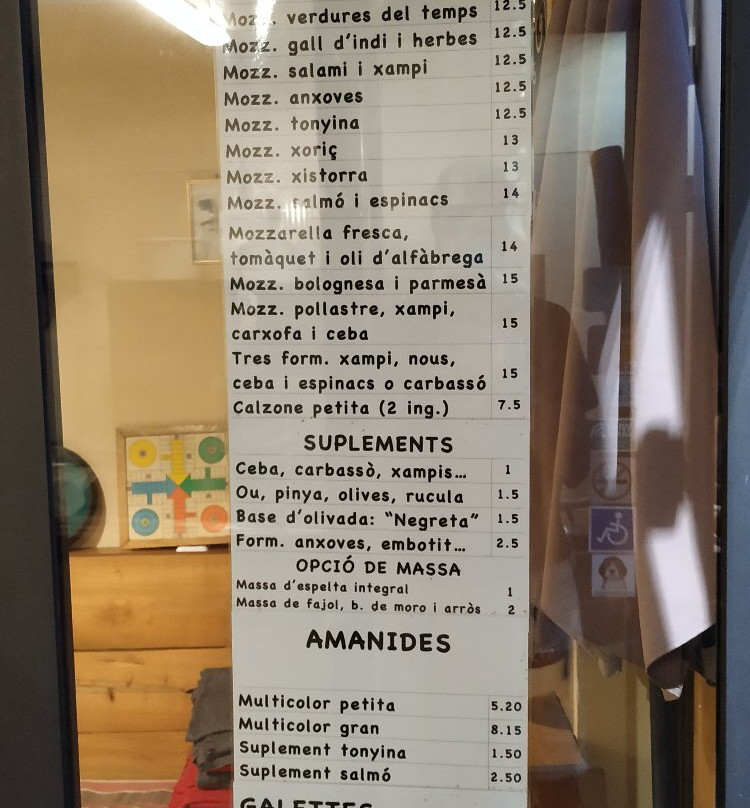 Mozz. verdures del temps 12.5
Mozz. gall d'indi i herbes 12.5
Mozz. salami i xampi 12.5
Mozz. anxoves 12.5
Mozz. tonyina 12.5
Mozz. xoriç 13
Mozz. xistorra 13
Mozz. salmó i espinacs 14
Mozzarella fresca,
tomàquet i oli d'alfàbrega 14
Mozz. bolognesa i parmesà 15
Mozz. pollastre, xampi,
carxofa i ceba 15
Tres form. xampi, nous,
ceba i espinacs o carbassó 15
Calzone petita (2 ing.) 7.5
SUPLEMENTS
Ceba, carbassò, xampis... 1
Ou, pinya, olives, rucula 1.5
Base d'olivada: "Negreta" 1.5
Form. anxoves, embotit... 2.5
OPCIÓ DE MASSA
Massa d'espelta integral 1
Massa de fajol, b. de moro i arròs 2
AMANIDES
Multicolor petita 5.20
Multicolor gran 8.15
Suplement tonyina 1.50
Suplement salmó 2.50
GALETTES